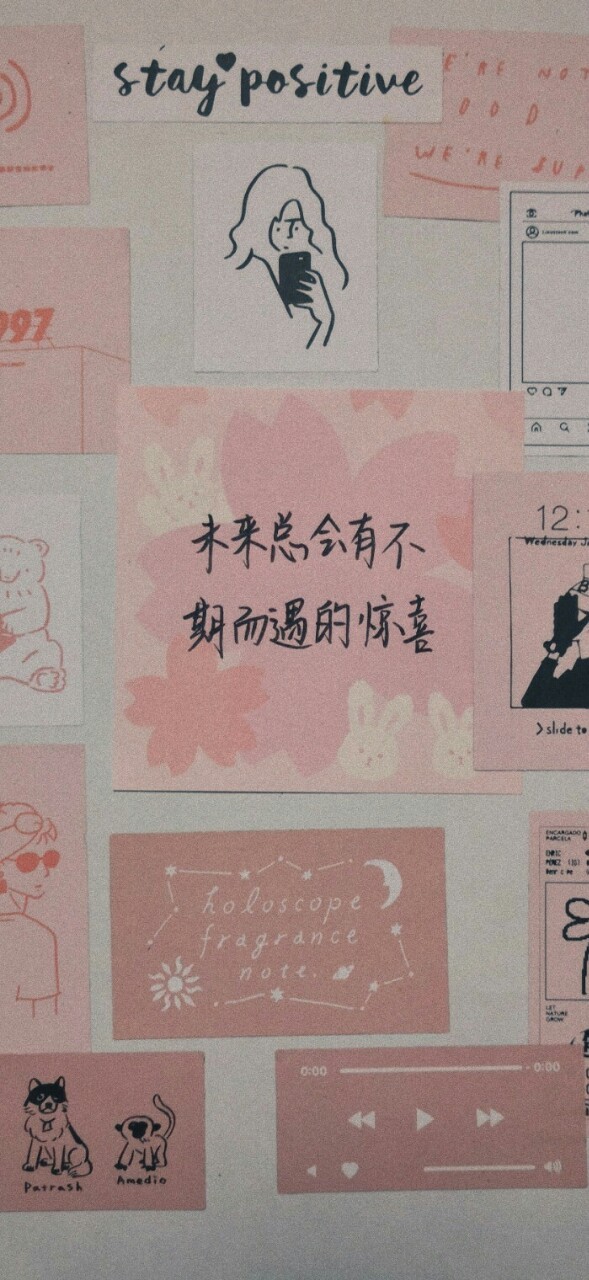 stay positive
WE'RE NOT
ODD
WE'RE
1997
未来总会有不
期而遇的惊喜
12:
Wednesday
slide to
holoscope
fragrance
note.
ENCARGADO
PARCELA
ENRIC
PEREZ
LET
NATURE
GROW
Patrash
Amedio
0:00
-0:00